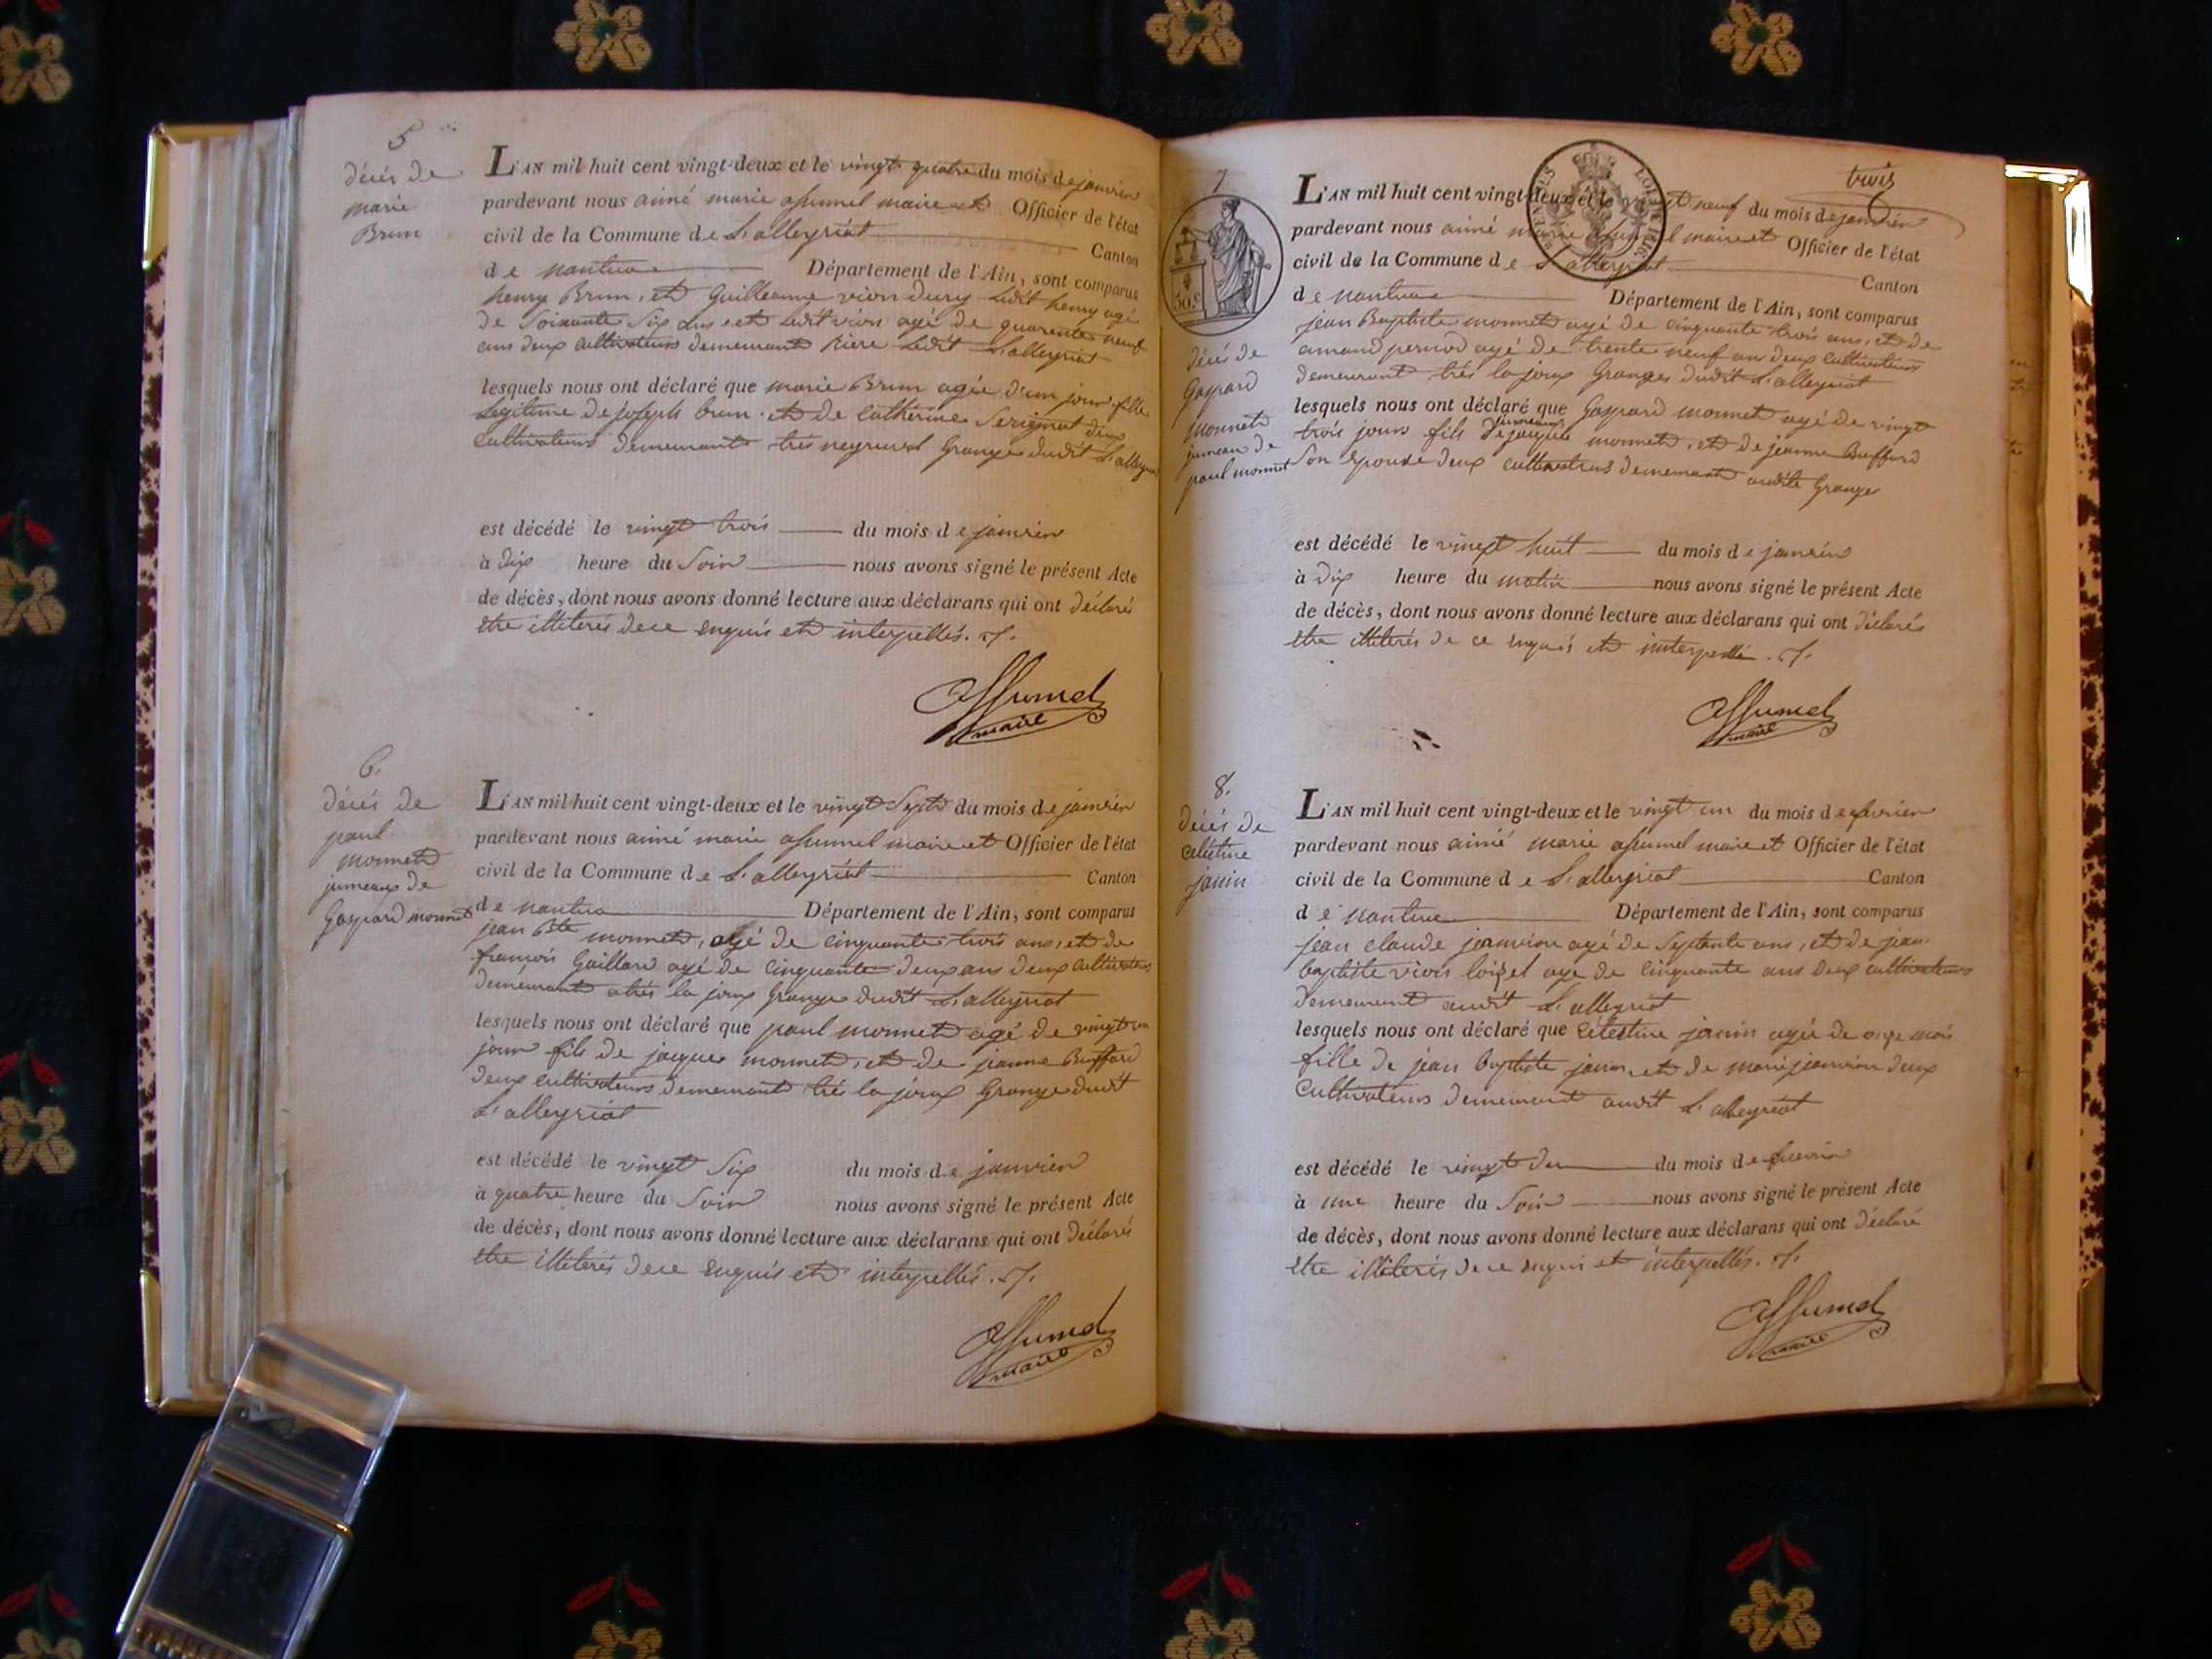 5
décés de
marie
Brun
L'AN mil huit cent vingt-deux et le vingt quatre du mois de janvier
pardevant nous aimé marie assumel maire et Officier de l'état
civil de la Commune de L'alleyriat Canton
de nantua Département de l'Ain, sont comparus
henry Brun, et Guilleaume vion dury ledit henry agé
de Soixante Six ans et ledit vion agé de quarente neuf
ans deux cultivateurs demeurant riere ledit L'alleyriat
lesquels nous ont déclaré que marie Brun agée d'un jour fille
Legitime de joseph brun et de catherine Serignat deux
cultivateurs demeurant Grange dudit L'alleyriat
est décédé le vingt trois du mois de janvier
à dix heure du Soir nous avons signé le présent Acte
de décès, dont nous avons donné lecture aux déclarans qui ont déclarés
etre illiterés de ce enquis et interpellés.
assumel
maire
6.
décés de
paul
monnet
jumeaux de
Gaspard monnet
L'AN mil huit cent vingt-deux et le vingt Sept du mois de janvier
pardevant nous aimé marie assumel maire et Officier de l'état
civil de la Commune de L'alleyriat Canton
de nantua Département de l'Ain, sont comparus
jean Bte monnet, agé de cinquante trois ans, et de
françois Gaillard agé de cinquante deux ans deux cultivateurs
demeurant la joux Grange dudit L'alleyriat
lesquels nous ont déclaré que paul monnet agé de vingt un
jour fils de jacque monnet, et de jeanne Buffard
deux cultivateurs demeurant la joux Grange dudit
L'alleyriat
est décédé le vingt Six du mois de janvier
à quatre heure du Soir nous avons signé le présent Acte
de décès, dont nous avons donné lecture aux déclarans qui ont déclarés
etre illiterés de ce enquis et interpellés.
assumel
maire
trois
7
30.c
décés de
Gaspard
monnet
jumeau de
paul monnet
L'AN mil huit cent vingt-deux et le vingt neuf du mois de janvier
pardevant nous aimé marie assumel maire et Officier de l'état
civil de la Commune de L'alleyriat Canton
de nantua Département de l'Ain, sont comparus
jean Baptiste monnet agé de cinquante trois ans, et de
amand agé de trente neuf ans deux cultivateurs
demeurant la joux Granges dudit L'alleyriat
lesquels nous ont déclaré que Gaspard monnet agé de vingt
trois jours fils jumeaux de jacque monnet, et de jeanne Buffard
Son Epouse deux cultivateurs demeurant audite Grange
est décédé le vingt huit du mois de janvier
à dix heure du matin nous avons signé le présent Acte
de décès, dont nous avons donné lecture aux déclarans qui ont déclarés
etre illiterés de ce enquis et interpellé.
assumel
maire
8.
décés de
célestine
janin
L'AN mil huit cent vingt-deux et le vingt un du mois de fevrier
pardevant nous aimé marie assumel maire et Officier de l'état
civil de la Commune de L'alleyriat Canton
de nantua Département de l'Ain, sont comparus
jean claude agé de Septante ans, et de jean
baptiste vion loisel agé de cinquante ans deux cultivateurs
demeurant audit L'alleyriat
lesquels nous ont déclaré que Célestine janin agée de onze mois
fille de jean baptiste janin et de marie deux
cultivateurs demeurant audit L'alleyriat
est décédé le vingt du mois de fevrier
à une heure du Soir nous avons signé le présent Acte
de décès, dont nous avons donné lecture aux déclarans qui ont déclaré
etre illiterés de ce enquis et interpellés.
assumel
maire